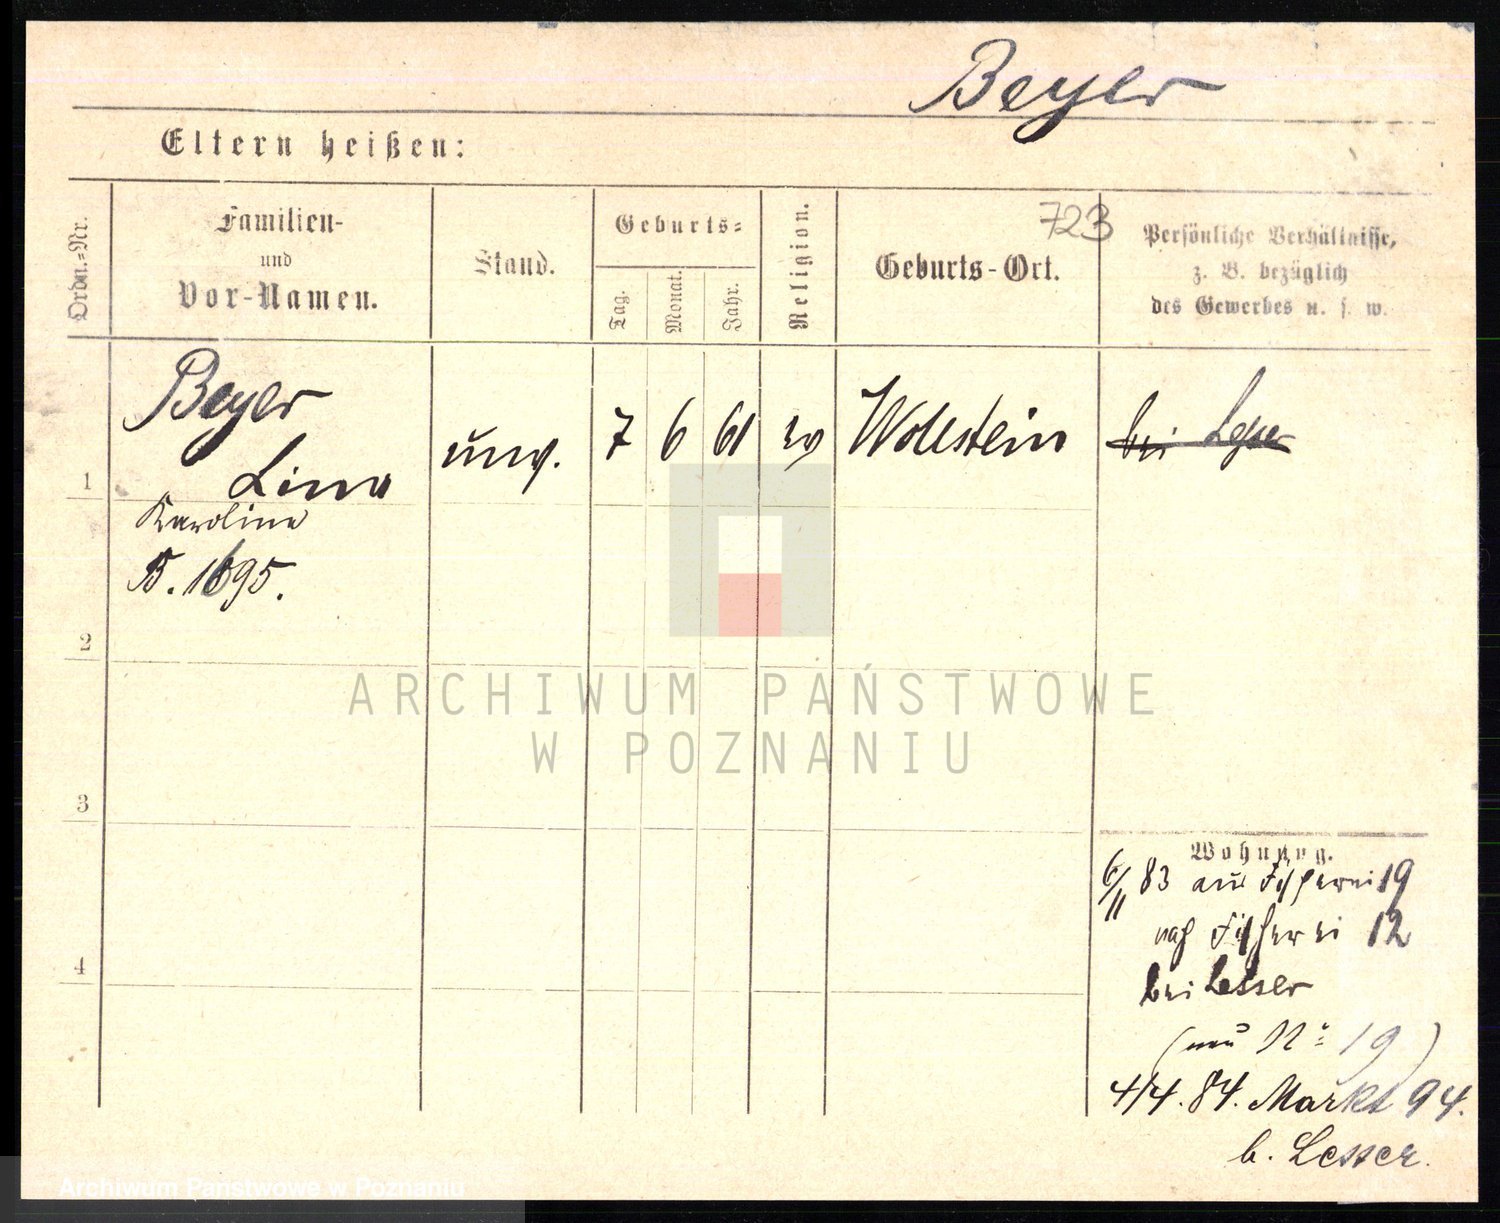 Beyer
Eltern heißen:
723
Ordn.=Nr.
Familien-
und
Vor-Namen.
Stand.
Geburts=
Tag.
Monat.
Jahr.
Religion.
Geburts-Ort.
Persönliche Verhältnisse,
z. B. bezüglich
des Gewerbes u. s. w.
1
Beyer
Lina
Karoline
B. 1695.
unv.
7
6
61
ev
Wollstein
bei Lesser
2
ARCHIWUM PAŃSTWOWE
W POZNANIU
3
Wohnung.
6/11 83 aus Fischerei 19
nach Fischerei 12
bei Lesser
4
(neu No 19)
4/4. 84. Markt 94.
b. Lesser.
Archiwum Państwowe w Poznaniu